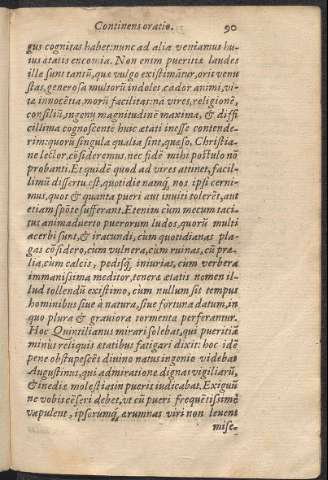 Continens oratio. 90
gus cognitas habet: nunc ad alia veniamus hu-
ius ætatis encomia. Non enim pueritiæ laudes
illæ sunt tantũ, quæ vulgo existimãtur, oris venu
stas, generosa multorũ indoles, cãdor animi, vi-
tæ innocẽtia, morũ facilitas: nã vires, religionẽ,
consiliũ, ingenij magnitudinẽ maximã, & diffi
cillima cognoscentẽ huic ætati inesse contende-
rim: quorũ singula qualia sint, quæso, Christia-
ne lector, cõsideremus, nec fidẽ mihi postulo nõ
probanti. Et quidẽ quod ad vires attinet, facil-
limũ dissertu est, quotidie namq́; nos ipsi cerni-
mus, quot & quanta pueri aut inuiti tolerẽt, aut
etiam spõte sufferant. Etenim cùm mecum taci-
tus animaduerto puerorum ludos, quorũ multi
acerbi sunt, & iracundi, cùm quotidianas pla-
gas cõsidero, cùm vulnera, cùm ruinas, cũ præ-
lia, cùm calcis, pedisq́; iniurias, cùm verbera
immanissima meditor, teneræ ætatis nomen il-
lud tollendũ existimo, cùm nullum sit tempus
hominibus siue à natura, siue fortuna datum, in
quo plura & grauiora tormenta perferantur.
Hoc Quintilianus mirari solebat, qui pueritiã
minùs reliquis ætatibus fatigari dixit: hoc idẽ
pene obstupescẽt diuino natus ingenio videbat
Augustinus, qui admiratione dignas vigiliarũ,
& inediæ molestias in pueris iudicabat. Exiguũ
ne vobis cẽseri debet, vt cũ pueri frequẽtissimè
vapulent, ipsorumq́; ærumnas viri non leuent
mise-